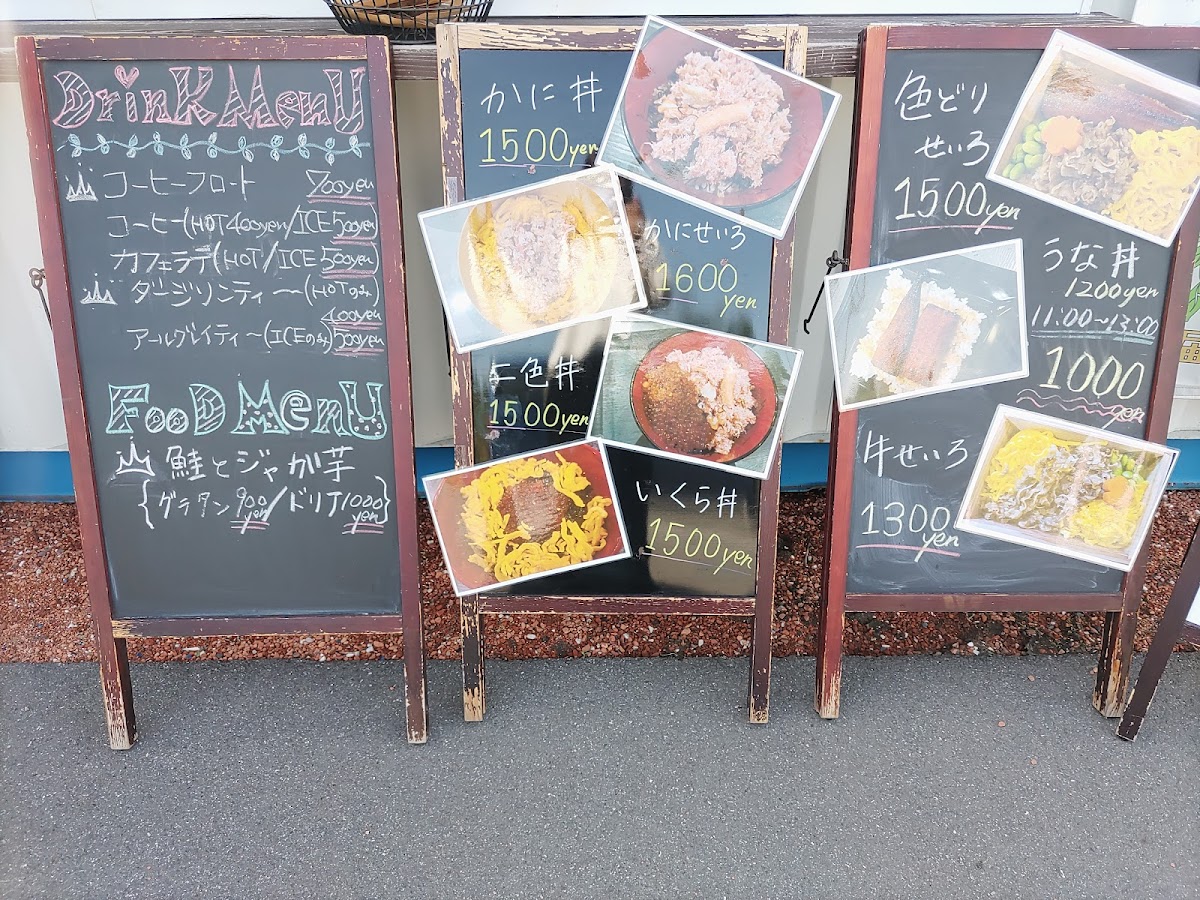 DrinK MenU
コーヒーフロート 700yen
コーヒー(HOT 400yen/ICE 500yen
カフェラテ(HOT/ICE 500yen)
ダージリンティー〜(HOTのみ)
400yen
アールグレイティ〜(ICEのみ)500yen
FooD MenU
鮭とジャが芋
{グラタン900yen/ドリア1020yen}
かに丼
1500yen
かにせいろ
1600yen
二色丼
1500yen
いくら丼
1500yen
色どり
せいろ
1500yen
うな丼
1200yen
11:00〜13:00
1000yen
牛せいろ
1300yen